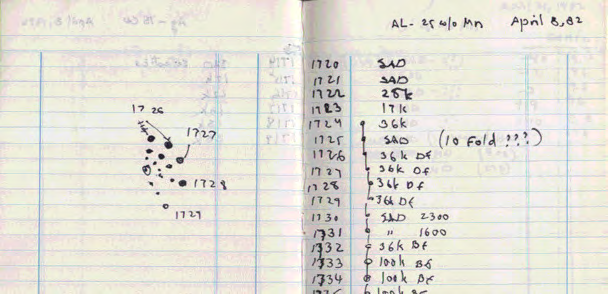 AL - 25 w/o Mn April 8, 82
1720 SAD
1721 SAD
1722 25k
1723 17k
1724 36k
1725 SAD (10 Fold ???)
1726 36k Df
1727 36k Df
1728 36k Df
1729 36k Df
1730 SAD 2300
1731 " 1600
1732 36k Bf
1733 100k Bf
1734 100k Bf
100k Bf
1726
1727
1728
1729